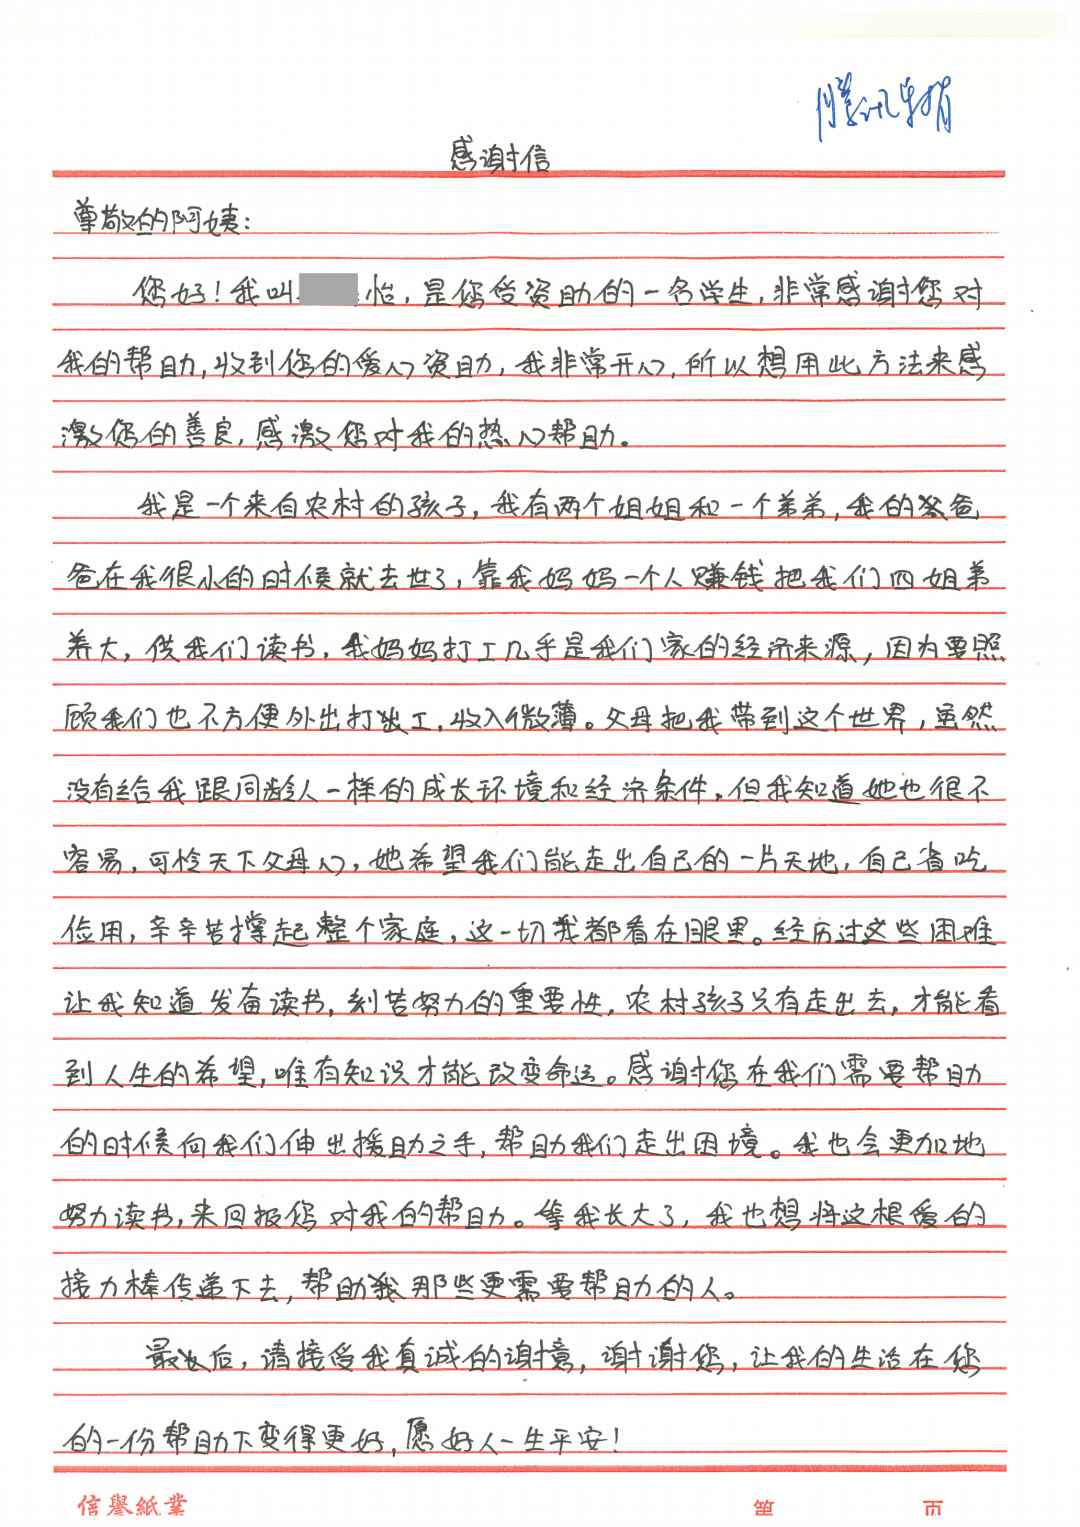 腾讯单捐
感谢信
尊敬的阿姨:
您好!我叫 怡,是您受资助的一名学生,非常感谢您对
我的帮助,收到您的爱心资助,我非常开心,所以想用此方法来感
激您的善良,感激您对我的热心帮助。
我是一个来自农村的孩子,我有两个姐姐和一个弟弟,我的爸
爸在我很小的时候就去世了,靠我妈妈一个人赚钱把我们四姐弟
养大,供我们读书,我妈妈打工几乎是我们家的经济来源,因为要照
顾我们也不方便外出打工,收入微薄。父母把我带到这个世界,虽然
没有给我跟同龄人一样的成长环境和经济条件,但我知道她也很不
容易,可怜天下父母心,她希望我们能走出自己的一片天地,自己省吃
俭用,辛辛苦撑起整个家庭,这一切我都看在眼里。经历过这些困难
让我知道发奋读书,刻苦努力的重要性,农村孩子只有走出去,才能看
到人生的希望,唯有知识才能改变命运。感谢您在我们需要帮助
的时候向我们伸出援助之手,帮助我们走出困境。我也会更加地
努力读书,来回报您对我的帮助。等我长大了,我也想将这根爱的
接力棒传递下去,帮助我那些更需要帮助的人。
最后,请接受我真诚的谢意,谢谢您,让我的生活在您
的一份帮助下变得更好,愿好人一生平安!
信誉紙業 第 页